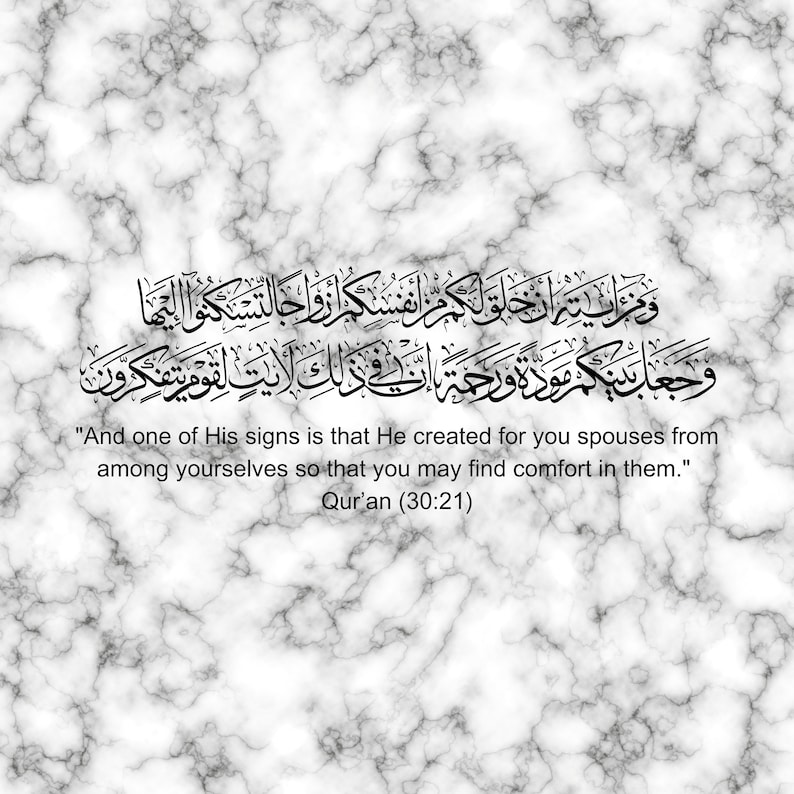 وَمِنْ ءَايَـٰتِهِۦٓ أَنْ خَلَقَ لَكُم مِّنْ أَنفُسِكُمْ أَزْوَٰجًا لِّتَسْكُنُوٓا۟ إِلَيْهَا
وَجَعَلَ بَيْنَكُم مَّوَدَّةً وَرَحْمَةً إِنَّ فِى ذَٰلِكَ لَـَٔايَـٰتٍ لِّقَوْمٍ يَتَفَكَّرُونَ
"And one of His signs is that He created for you spouses from
among yourselves so that you may find comfort in them."
Qur’an (30:21)